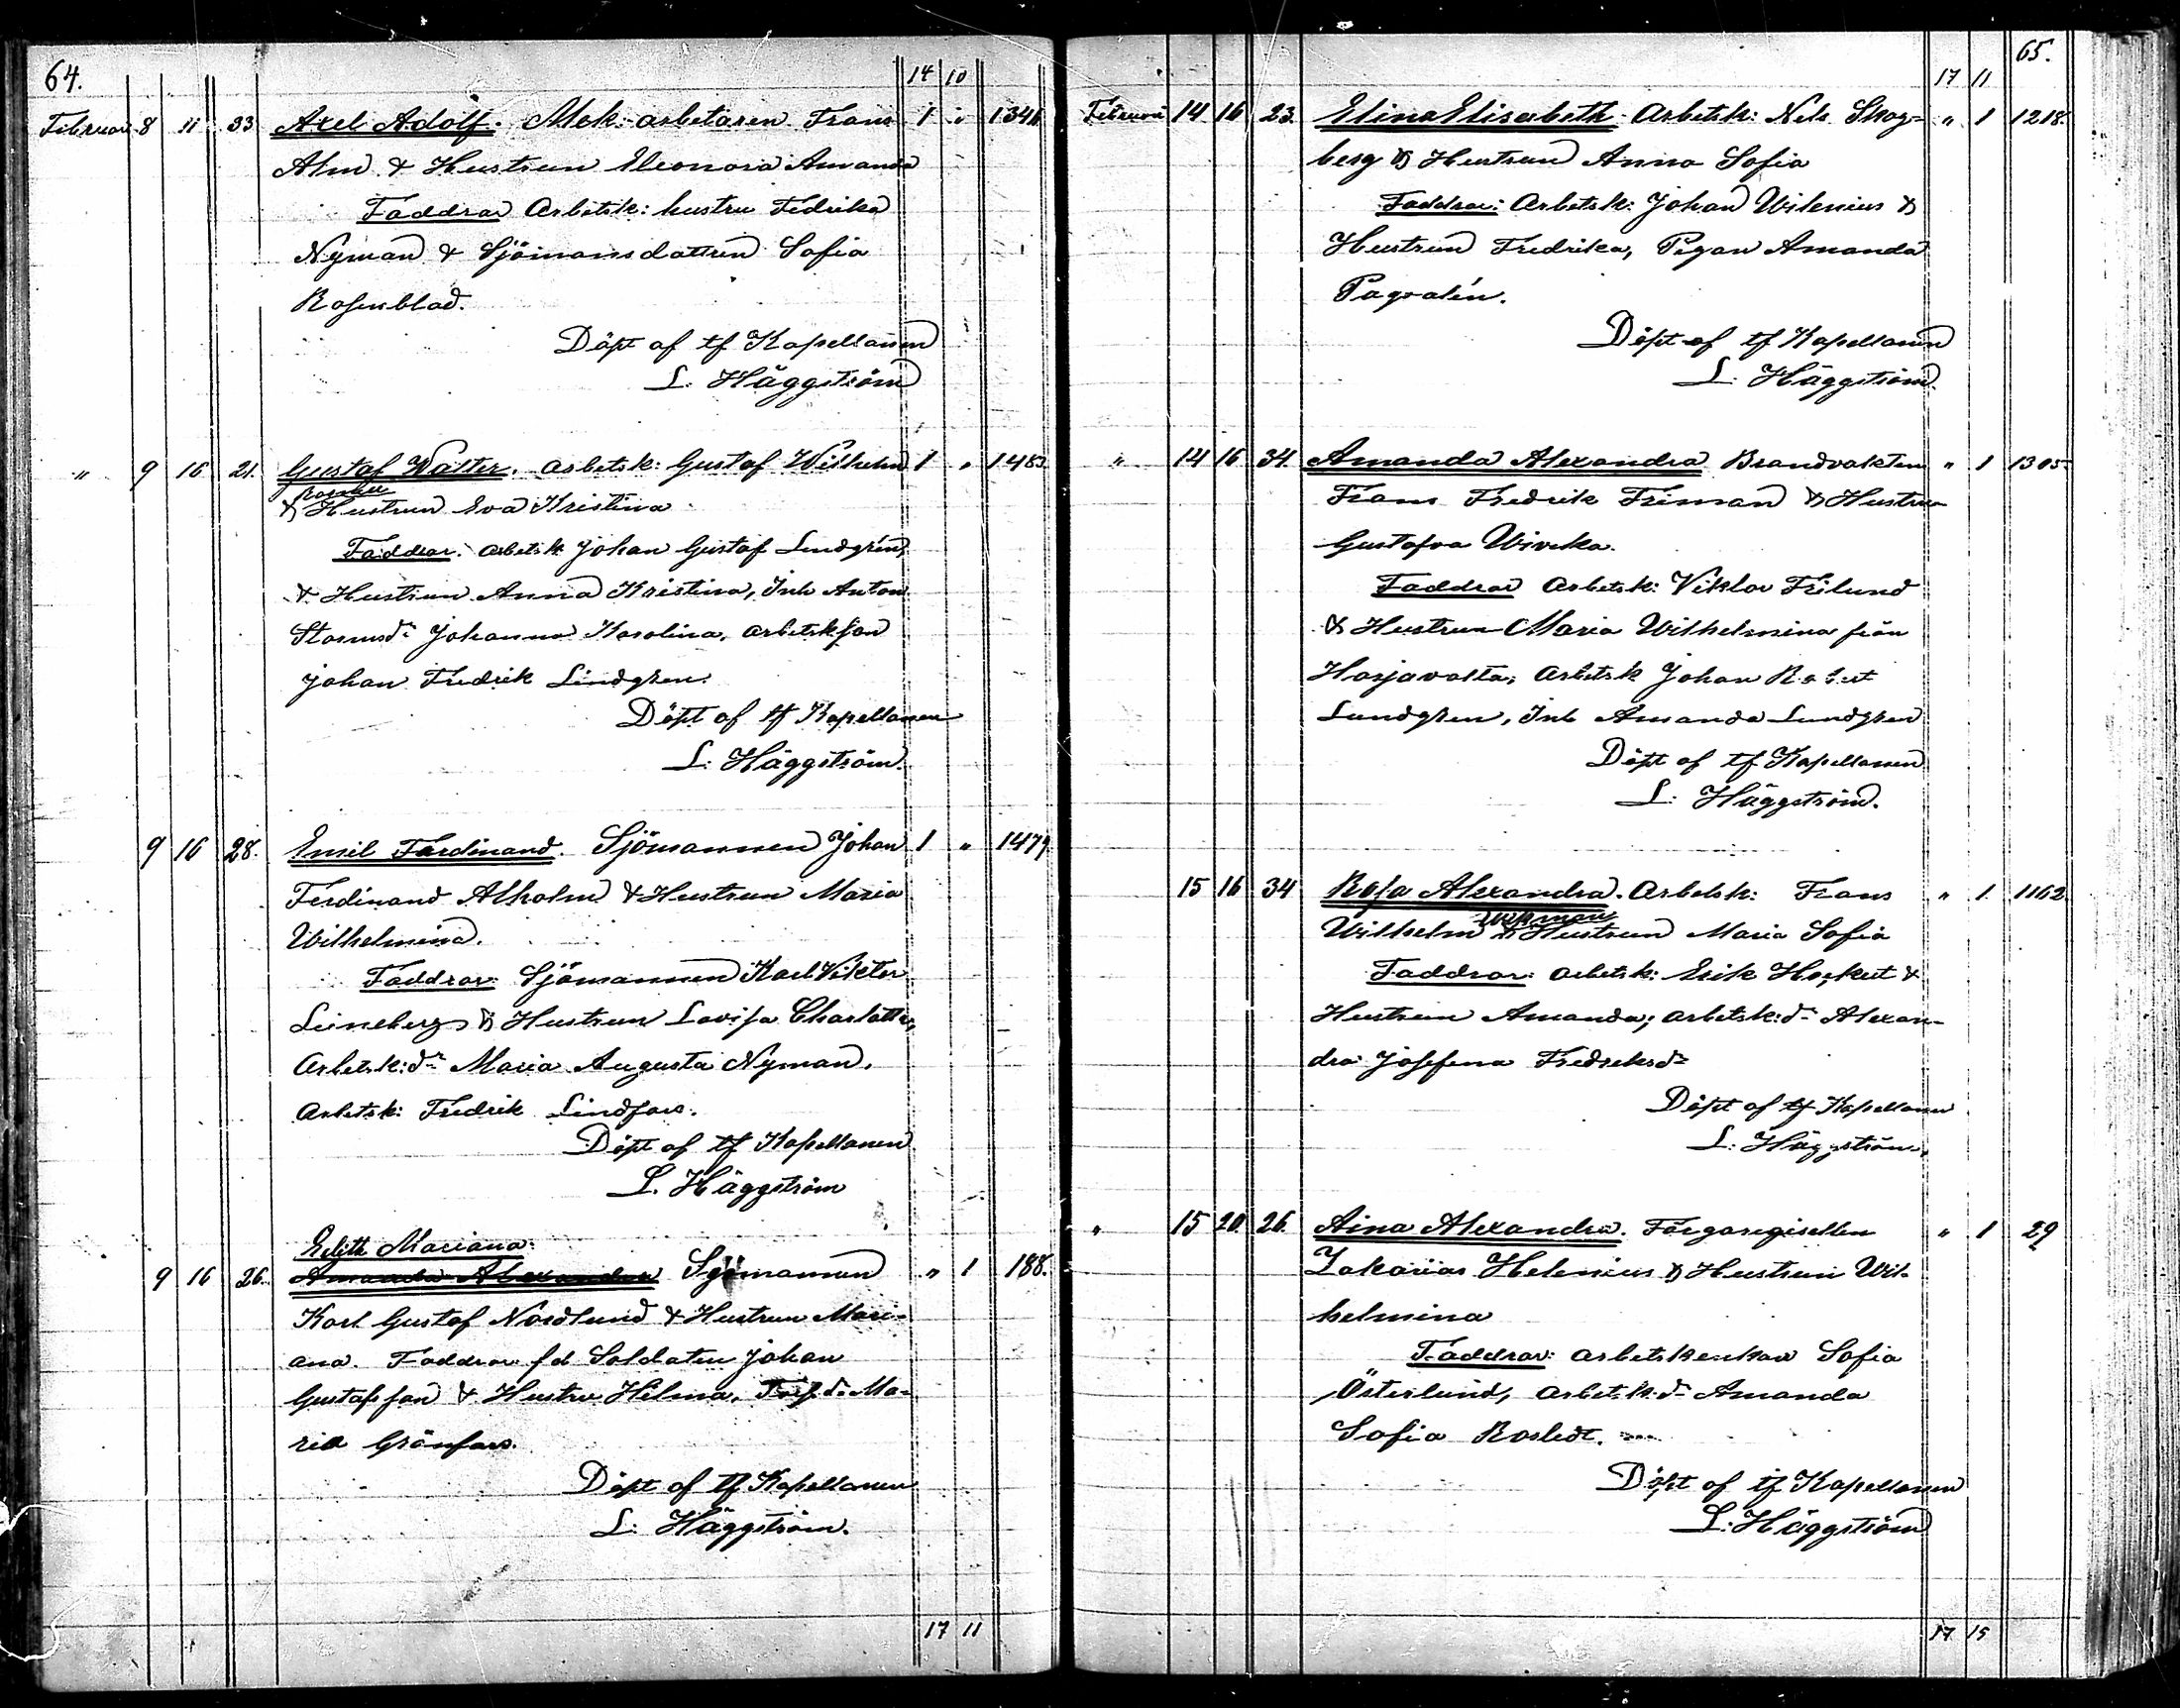 64.
14 10
Februari 8 11 33 Axel Adolf. Mek: arbetaren Frans 1 " 1346
Alm & Hustrun Eleonora Amanda
Faddrar Arbetsk: hustru Fedrika
Nyman & Sjömansdottren Sofia
Rosenblad.
Döpt af tf Kapellanen
L. Häggström
" 9 16 21. Gustaf Walter. Arbetsk: Gustaf Wilhelm 1 " 1483
& Hustrun Eva Kristina
Faddrar: Arbetsk Johan Gustaf Lindgren,
& Hustrun Anna Kristina, Inh Anton
Johanna Karolina, arbetskson
Johan Fredrik Lindgren.
Döpt af tf Kapellanen
L: Häggström.
9 16 28. Emil Ferdinand. Sjömannen Johan 1 " 1479
Ferdinand Alholm & Hustrun Maria
Wilhelmina.
Faddrar: Sjömannen Karl Viktor
Leineberg & Hustrun Lovisa Charlotta,
Arbetsk: dr Maria Augusta Nyman,
Arbetsk: Fredrik Lindfors.
Döpt af tf Kapellanen
L. Häggström
Edith Mariana:
9 16 26. Amanda Alexandra Sjömannen " 1 188.
Karl Gustaf Nordlund & Hustrun Mari-
ana. Faddrar fd Soldaten Johan
Gustafsson & Hustru Helma, Ma-
ria Grönfors.
Döpt af tf Kapellanen
L: Häggström.
17 11
65.
17 11
Februari 14 16 23. Elina Elisabeth Arbetsk: Nels Skog- " 1 1218.
berg & Hustrun Anna Sofia
Faddrar: Arbetsk: Johan Wilenius &
Hustrun Fredrika, Pigan Amanda
Pagvalén.
Döpt af tf Kapellanen
L. Häggström.
" 14 16 34. Amanda Alexandra Brandvakten " 1 1305
Frans Fredrik Friman & Hustrun
Gustafva Wiveka.
Faddrar Arbetsk: Viktor Frilund
& Hustrun Maria Wilhelmina från
Harjavalta; Arbetsk Johan Robert
Lundgren, Inh Amanda Lundgren
Döpt af tf Kapellanen
L: Häggström.
15 16 34 Rosa Alexandra. Arbetsk: Frans " 1 1162
Wilhelm & Hustrun Maria Sofia
Faddrar: arbetsk: Erik Hockert &
Hustrun Amanda; arbetsk: dr Alexan-
dra Josefina Fredriksdr
Döpt af tf Kapellanen
L: Häggström.
" 15 20 26. Aina Alexandra. Färgaregisellen " 1 29
Zakarias Helenius & Hustrun Wil-
helmina
Faddrar: arbetskenkan Sofia
Österlund, arbetsk: dr Amanda
Sofia Rosledt.
Döpt af tf Kapellanen
L: Häggström
17 15